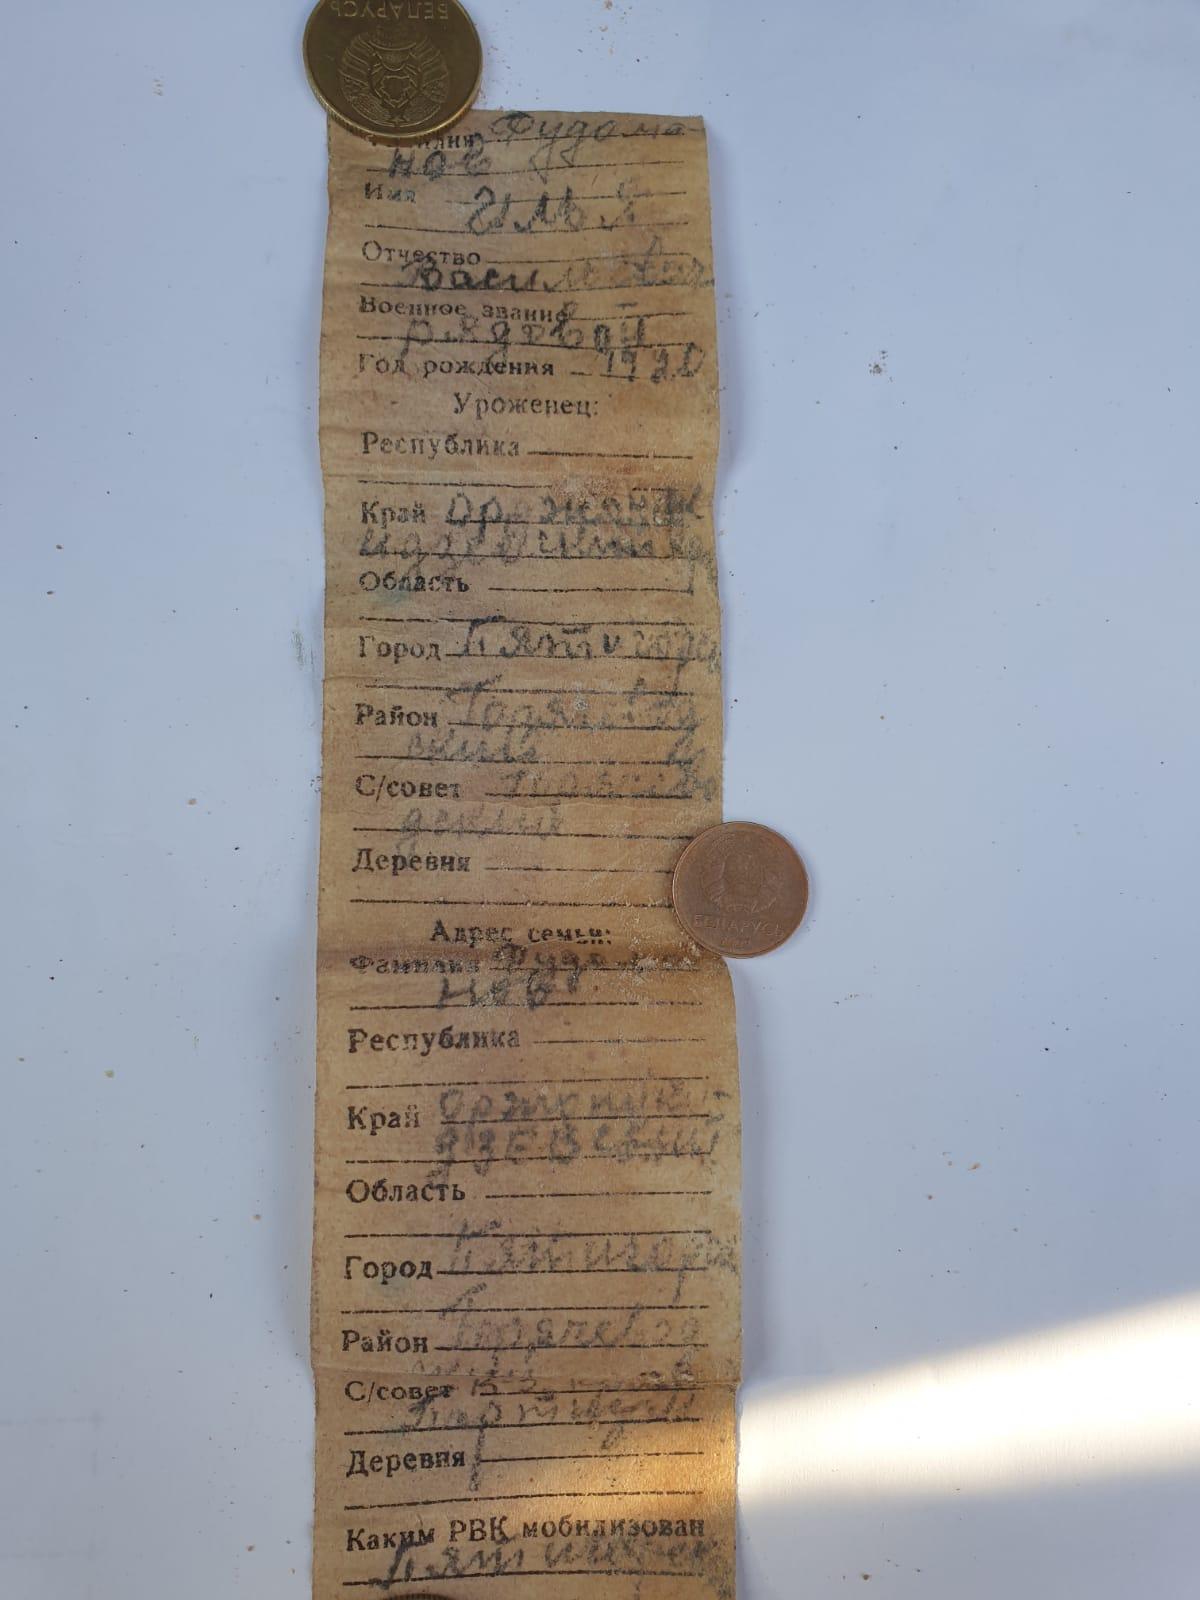 БЕЛАРУСЬ
Фудома-
нов
Имя Илья
Отчество
Васильевич
Военное звание
рядовой
Год рождения 1920
Уроженец:
Республика
Край Орджоник
идзевский
Область
Город Пятигорск
Район
С/совет
Деревня
БЕЛАРУСЬ
Адрес семьи:
Фамилия Фудома
нов
Республика
Край Орджоники-
дзевский
Область
Город Пятигорск
Район
С/совет
Деревня
Каким РВК мобилизован